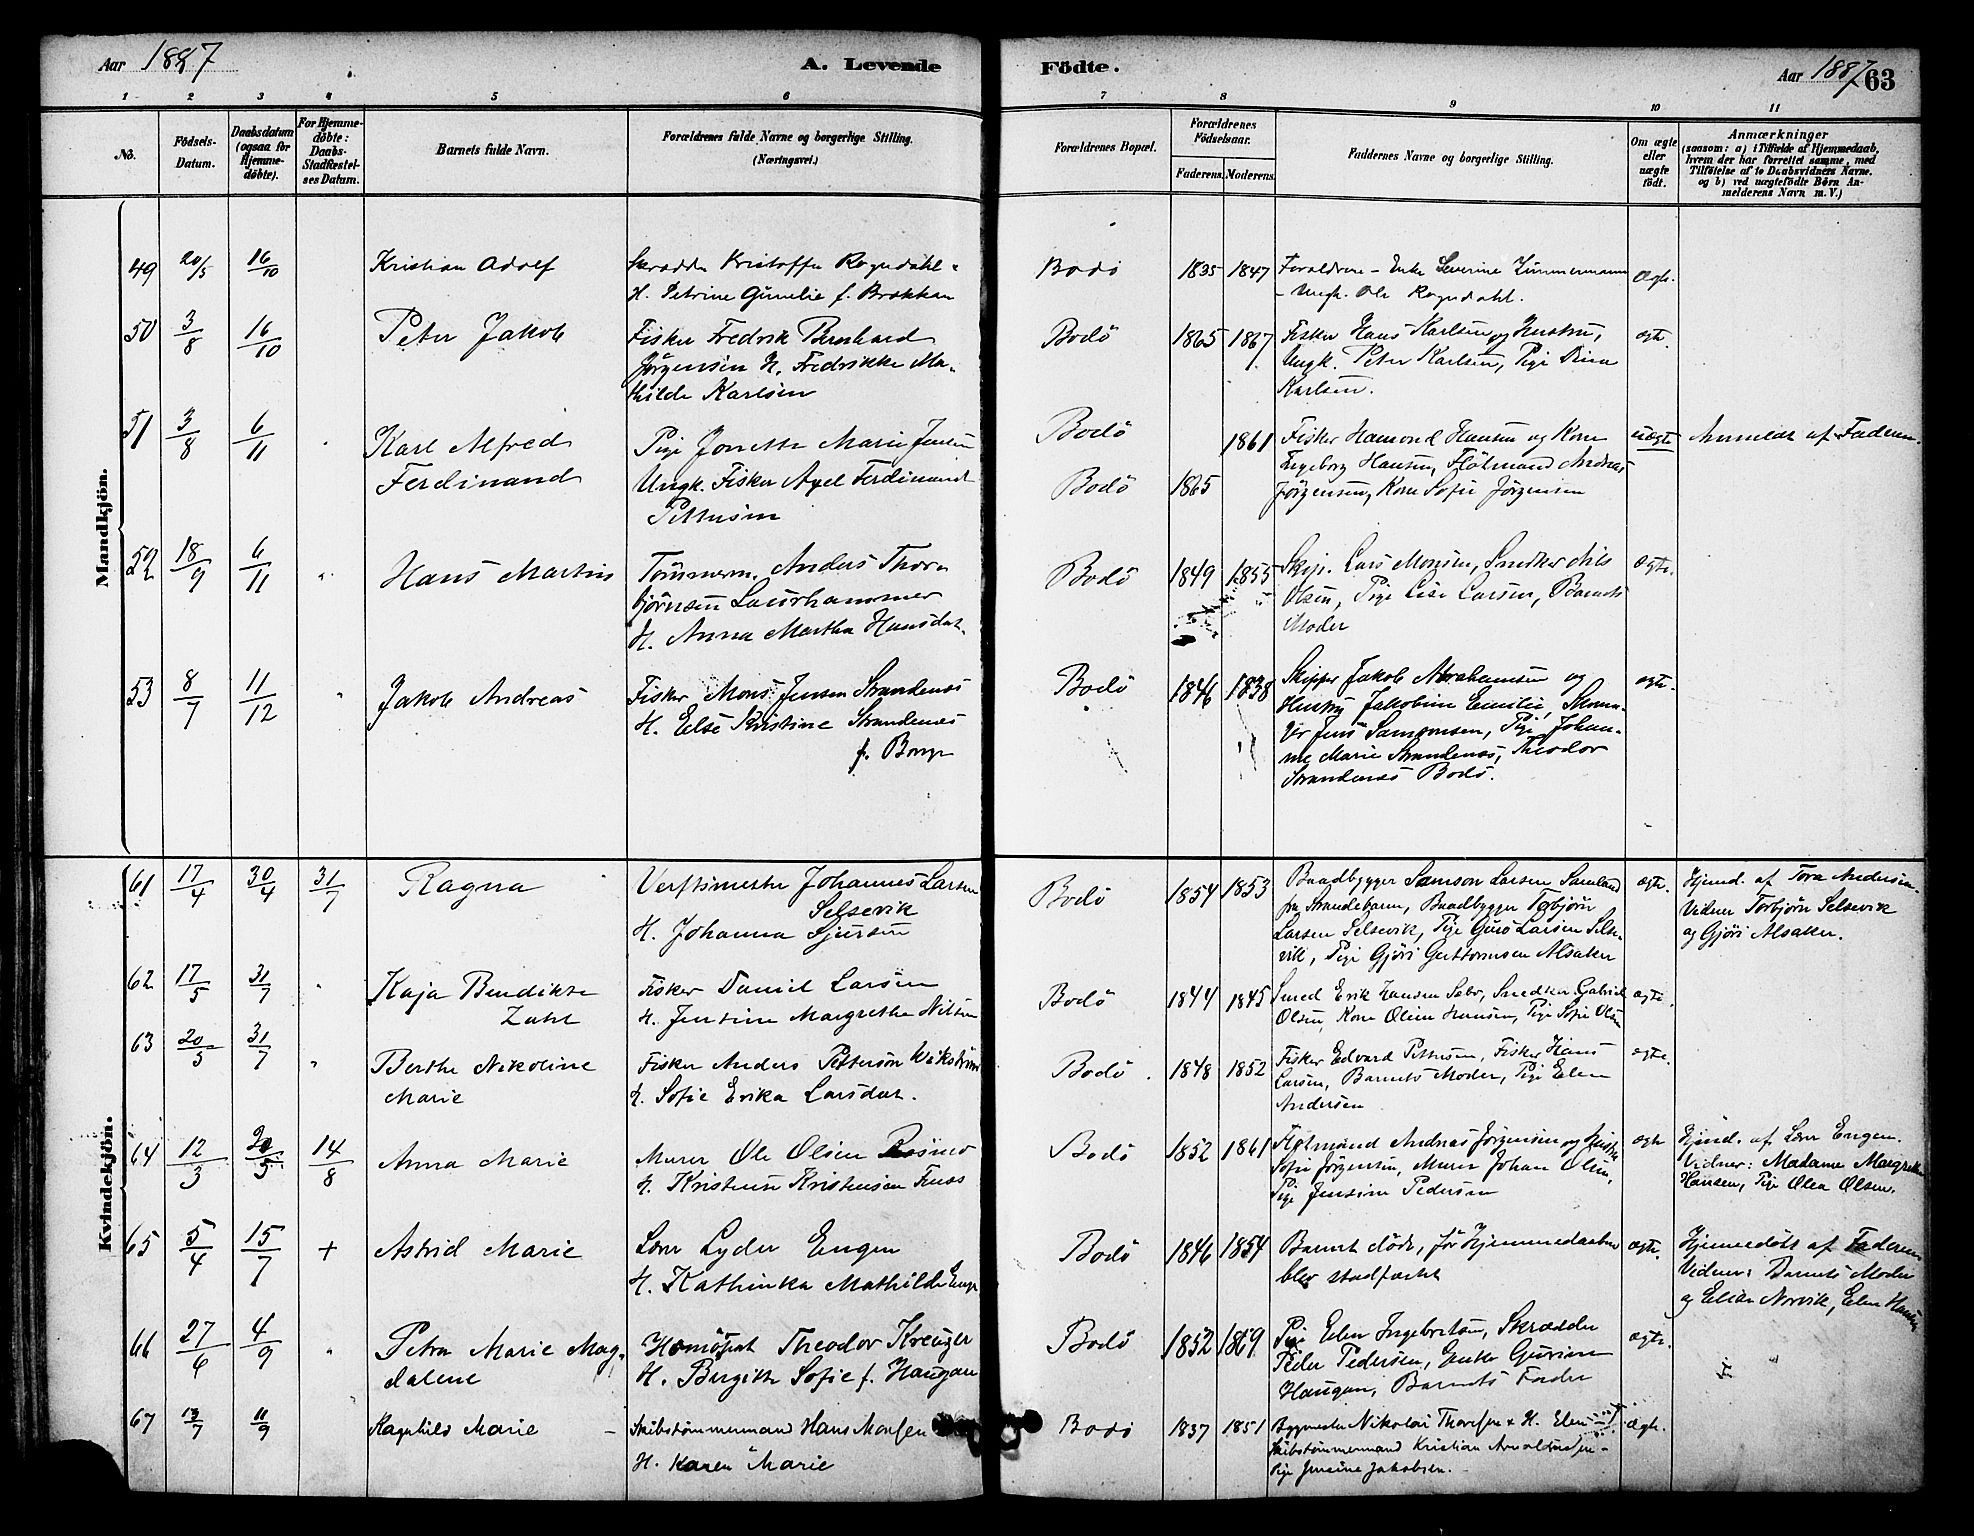 Aar 1887
A. Levende
Födte.
Aar 1887
63
1 2 3 4 5 6 7 8 9 10 11
No.
Födsels-Datum.
Daabsdatum (ogsaa for Hjemme-döbte).
For Hjemme-döbte: Daabs-Stadfæstel-ses Datum.
Barnets fulde Navn.
Forældrenes fulde Navne og borgerlige Stilling.
(Næringsvei.)
Forældrenes Bopæl.
Forældrenes Födselsaar.
Faderens. Moderens.
Faddernes Navne og borgerlige Stilling.
Om ægte eller uægte födt.
Anmærkninger
(saasom: a) i Tilfælde af Hjemmedaab,
hvem der har forrettet samme, med
Tilföielse af to Daabsvidners Navne.
og b) ved uægtefödte Börn An-
melderens Navn m. V.)
Mandkjön.
49 20/5 16/10 Kristian Adolf
Skrædder Kristoffer Rogndahl
H. Petrine Gunelie f. Brækkan
Bodö 1835 1847
Forældrene - Enke Severine Zimmermann
- Ungk. Ole Rogndahl.
Ægte.
50 3/8 16/10 Peter Jakob
Fisker Fredrik Bernhard
Jörgensen H. Fredrikke Ma-
thilde Karlsen
Bodö 1865 1867
Fisker Hans Karlsen og Hustru,
Ungk. Peter Karlsen, Pige Dina
Karlsen.
ægte.
51 3/8 6/11 Karl Alfred
Ferdinand
Pige Jonette Marie Jensen
Ungk. Fisker Axel Ferdinand
Pettersen
Bodö 1861
Bodö 1865
Fisker Hamond Hansen og Kone
Ingeborg Hansen, Flötmand Andreas
Jörgensen, Kone Sofie Jörgensen
uægte
Anmeldt af Faderen.
52 18/9 6/11 Hans Martin
Tömmerm. Anders Thor-
björnsen Laurhammer
H. Anna Martha Hansdat.
Bodö 1849 1855
Skip. Lars Monsen, Snedker Nils
Olsen, Pige Lise Larsen, Barnets
Moder
ægte.
53 8/7 11/12 " Jakob Andreas
Fisker Mons Jensen Strandenæs
H. Else Kristine Strandenæs
f. Borge
Bodö 1846 1838
Skipper Jakob Abrahamsen og
Hustru Jakobine Emilie, Skoma-
ger Jens Samsonsen, Pige Johan-
ne Marie Strandenæs, Theodor
Strandenæs Bodö.
ægte.
Kvindekjön.
61 17/4 30/4 31/7 Ragna
Verftsmester Johannes Larsen
Selsevik
H. Johanna Sjursen
Bodö 1854 1853
Baadbygger Samson Larsen Samland
fra Strandebarm, Baadbygger Torbjörn
Larsen Selsevik, Pige Guro Larsen Selse-
vik, Pige Gjöri Guttormsen Alsaker
ægte.
Hjemd. af Tora Andersen.
Vidner Torbjörn Selsevik
og Gjöri Alsaker.
62 17/5 31/7 Kaja Bendikte
Zahl
Fisker Daniel Larsen
H. Jensine Margrethe Nilsen
Bodö 1844 1845
Smed Erik Hansen Sebö, Snedker Gabriel
Olsen, Kone Oline Hansen, Pige Sofie Olsen
ægte.
63 20/5 31/7 " Berthe Nikoline
Marie
Fisker Anders Petterson Wikström
H. Sofie Erika Larsdat.
Bodö . 1848 1852
Fisker Edvard Pettersen, Fisker Hans
Larsen, Barnets Moder, Pige Elen
Andersen
ægte.
64 12/3 20/5 14/8 Anna Marie
Murer Ole Olsen Rösmo
H. Kristense Kristensen Fuss
Bodö 1852 1861
Flötmand Andreas Jörgensen og Hustru
Sofie Jörgensen, Murer Johan Olsen,
Pige Jensine Pedersen
ægte
Hjemd. af Lærer Engen.
Vidner: Madame Margrethe
Hansen, Pige Olea Olsen.
65 5/4 15/7 + Astrid Marie
Lærer Lyder Engen
H. Kathinka Mathilde Engen
Bodö 1846 1854
Barnet döde, för Hjemmedaaben
blev stadfæstet
ægte.
Hjemmedöbt af Faderen
Vidner: Barnets Moder
og Elian Norvik, Elen Hansen
66 27/6 4/9 " Petra Marie Mag-
dalene
Homöopat Theodor Kreuzer
H. Bergitte Sofie f. Haugan
Bodö 1852 1859
Pige Elen Ingebretsen, Skrædder
Peder Pedersen, Enke Gurine
Haugan, Barnets Fader
ægte.
67 13/7 11/9 Ragnhild Marie
Skibstömmermand Hans Monsen
H. Karen Marie
Bodö 1837 1851
Bygmester Nikolai Thoresen & H. Elen
Skibstömmermand Kristian Arnoldussen -
Pige Jensine Jakobsen.
ægte.